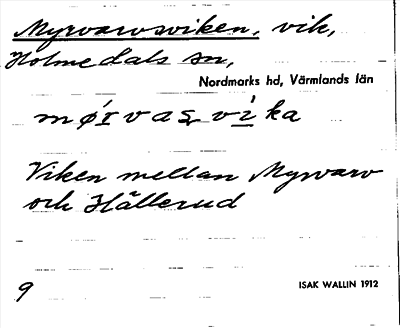 Myrvarvsviken, vik,
Holmedals sn,
Nordmarks hd, Värmlands län
mǿɪvas̲vì̲ka
Viken mellan Myrvarv
och Hällerud
9
ISAK WALLIN 1912